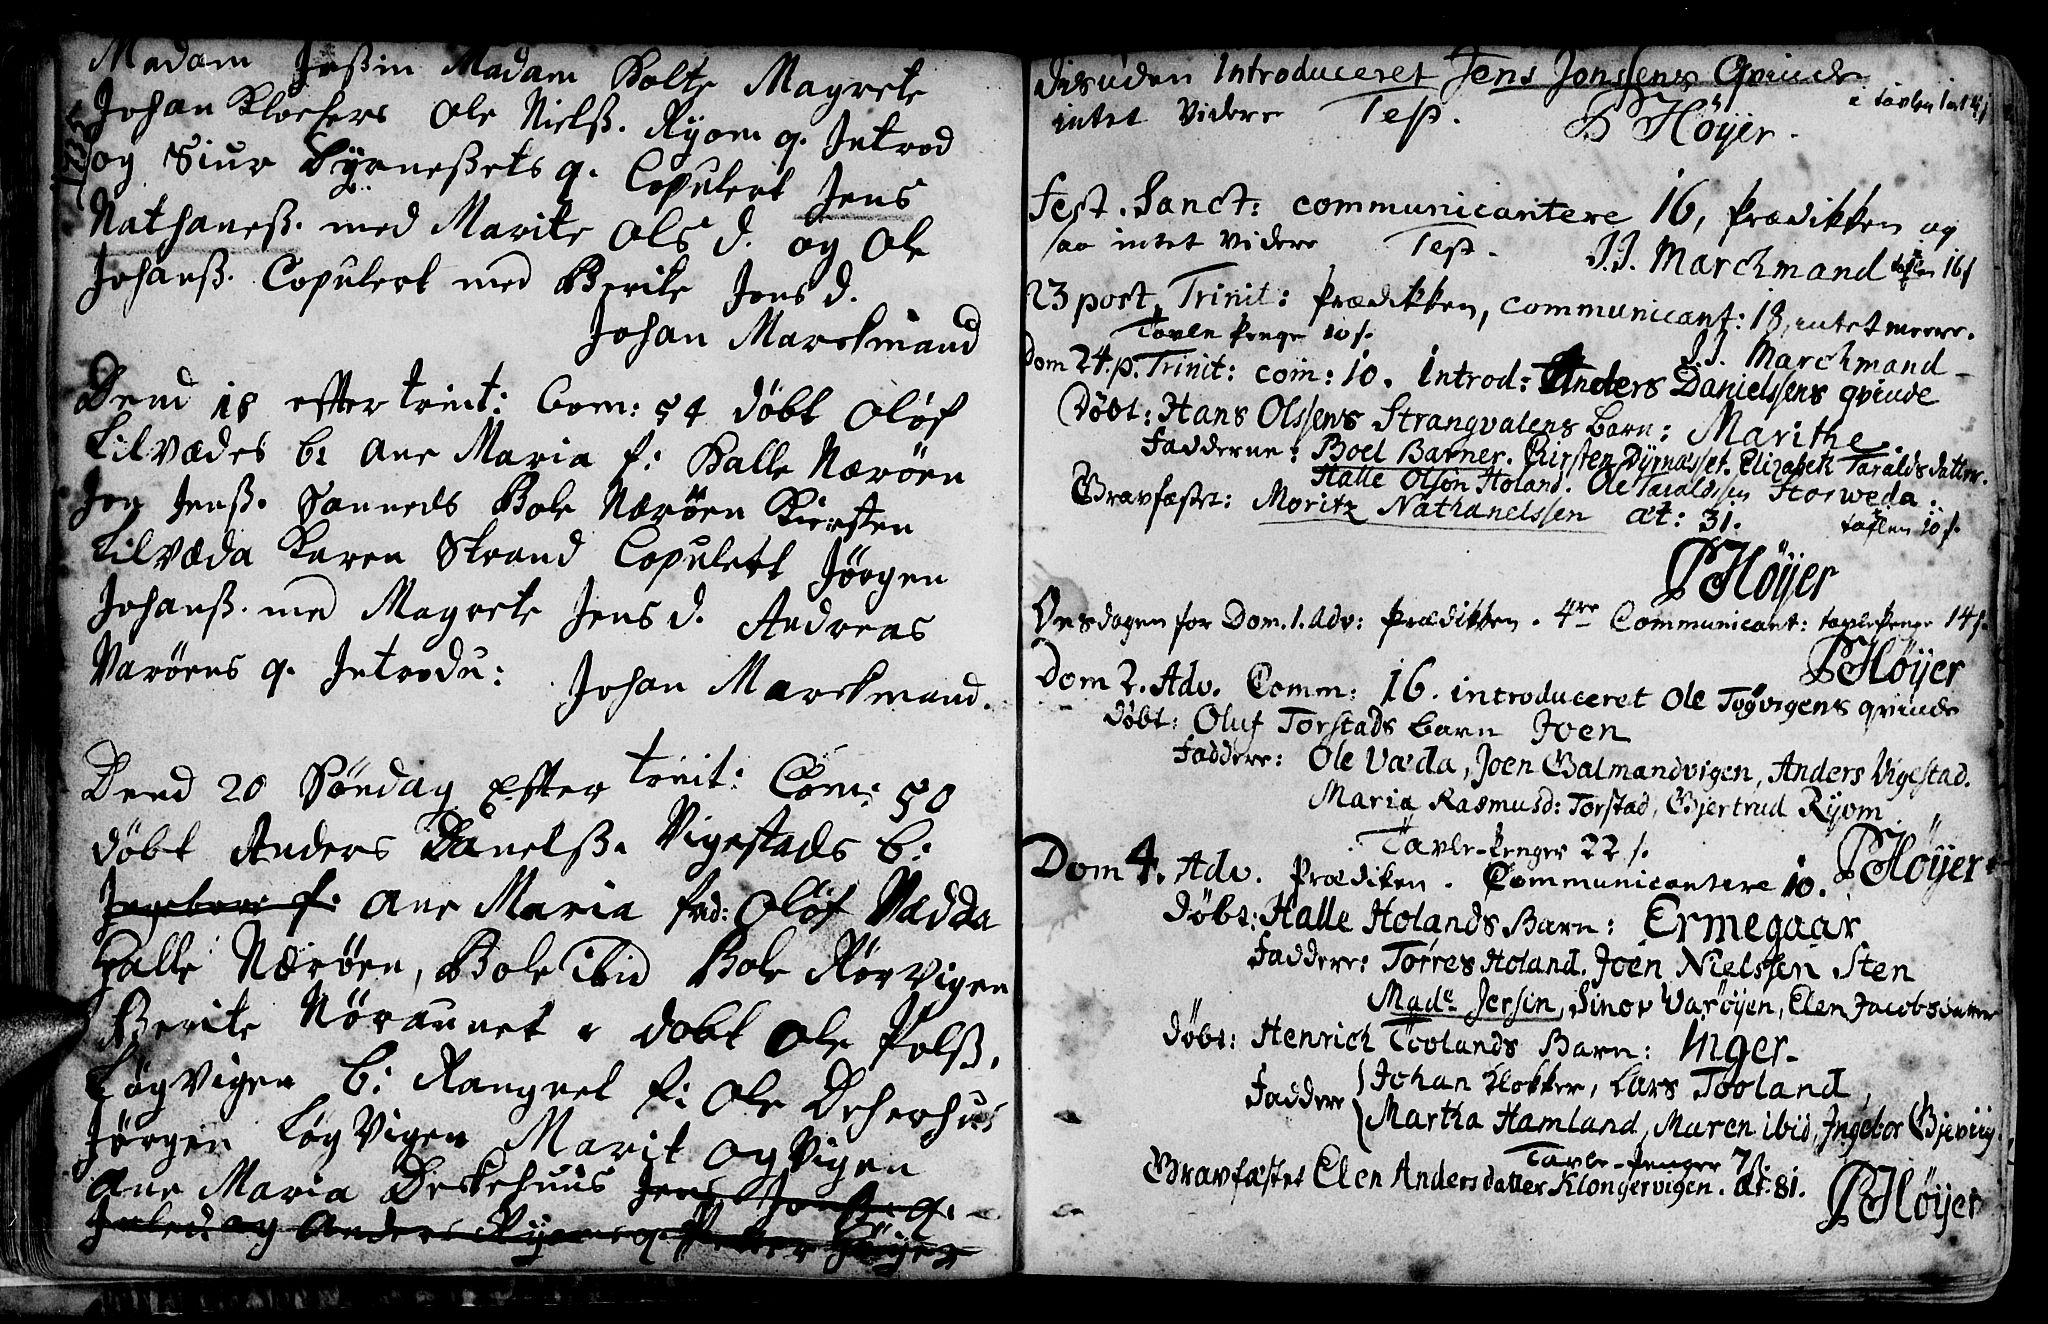 1735
Madam Jeßin Madam Holte Magrete
Johan Klochers Ole Nielß. Ryom q. Introd
og Siur Dyrneßets q. Copulert Jens
Nathaneß. med Marite Ols d. og Ole
Johanß. Copulert med Berite Jens d.
Johan Marckmand
Dend 18 efter trinit: Com: 54 døbt Oløf
Lilvædes b: Ane Maria f: Halle Nærøen
Jon Jenß. Sanneds Bole Nærøen Kiersten
Lilvæda Karen Strand Copulert Jørgen
Johanß. med Magrete Jens d. Andreas
Varøens q. Introdu:
Johan Marckmand.
Dend 20 Søndag Efter trinit: Com: 50
døbt Anders Danelß. Vigestads b:
Ingebor f. Ane Maria fad: Oløf Vædda
Halle Nærøen, Bole ibid Bole Rørvigen
Berite Nøraunet døbt Ole Polß.
Løgvigen b: Rangnel f: Ole
Jørgen Løgvigen Marit Ogvigen
Ane Maria Jens Jonß. q.
og Anders Ryoms q Petter Høyer
Disuden Introduceret Jens Jonssens Qvinde
intet Videre Teß. i tavlen
P Höyer.
Fest. Sanct: communicantere 16, Prædikken og
saa intet Videre Teß.
J.J. Marchmand taflen 16 s
23 post Trinit: Prædikken, communicant: 18, intet meere.
Tavle Penge 10 s.
J.J. Marchmand
Dom 24. p. Trinit: com: 10. Introd: Anders Danielssens qvinde
Døbt: Hans Olssens Strangvalens Barn: Marithe.
Fadderne: Boel Barner. Kirsten Dyrnæsset. Elizabeth Taraldsdatter.
Halle Olsøn Holand. Ole Taraldssen Storweda.
Gravfæstet: Moritz Nathanelssen æt: 31.
taflen 10 s.
P Höyer
Onsdagen for Dom. 1. Adv: Prædikken. 4re Communicant: tavlePenge 14 s.
P Höyer
Dom 2. Adv. Comm: 16. introduceret Ole Togvigens qvinde
døbt: Oluf Torstads Barn Joen
Faddere: Ole Væda, Joen Galmandvigen, Anders Vigestad.
Maria Rasmusd: Torstad, Gjertrud Ryom.
Tavle-Penger 22 s.
P Höyer
Dom 4. Adv. Prædiken. Communicantere 10.
døbt: Halle Holands Barn: Ermegaar
Faddere: Torres Holand. Joen Nielssen Sten
Made Jersin, Sinov Warøyen, Elen Jacobsdatter
døbt: Henrich Toolands Barn: Inger.
Faddere Johan Klokker, Lars Tooland,
Martha Hamland, Maren ibid, Ingebor Gjeviig.
Tavle-Penger 7 s.
Gravfæstet Elen Andersdatter Klongervigen. æt: 81.
P Höyer